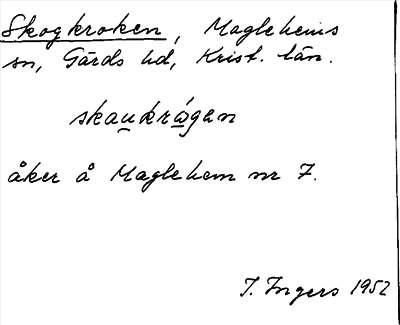 Skogkroken, Maglehems
sn, Gärds hd, Krist. län.
skau̯krɷ́gan
åker å Maglehem nr 7.
I. Ingers 1952